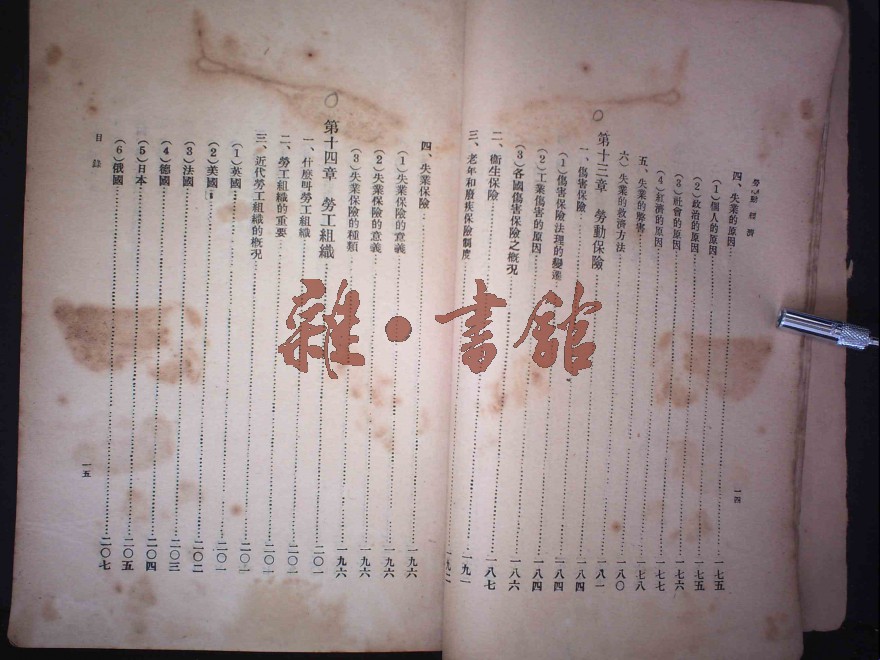 勞動經濟
四、失業的原因……一七五
（1）個人的原因……一七五
（2）政治的原因……一七五
（3）社會的原因……一七六
（4）經濟的原因……一七七
五、失業的弊害……一七八
六、失業的救濟方法……一八〇
第十三章 勞動保險……一八一
一、傷害保險……一八四
（1）傷害保險法理的變遷……一八四
（2）工業傷害的原因……一八四
（3）各國傷害保險之概況……一八六
二、衞生保險……一八七
三、老年和廢疾保險制度……一九一
一四
四、失業保險……一九六
（1）失業保險的意義……一九六
（2）失業保險的意義……一九六
（3）失業保險的種類……一九六
第十四章 勞工組織……二〇一
一、什麼叫勞工組織……二〇一
二、勞工組織的重要……二〇一
三、近代勞工組織的概況……二〇一
（1）英國……二〇一
（2）美國……二〇一
（3）法國……二〇二
（4）德國……二〇三
（5）日本……二〇四
（6）俄國……二〇五
二〇七
目錄
一五
雜·書館